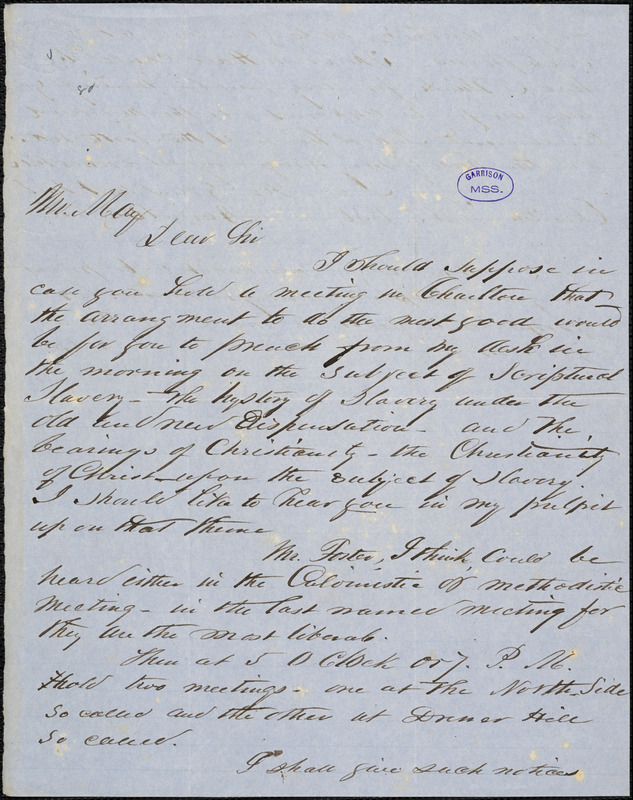 GARRISON
MSS.
Mr. May
Dear Sir
I should suppose in
case you hold a meeting in Charlton that
the arrangment to do the most good would
be for you to preach from my desk in
the morning on the subject of Scriptural
Slavery - the hystory of Slavery under the
old and new Dispensation - and the
bearings of Christianity - the Christianity
of Christ - upon the subject of Slavery.
I should like to hear you in my pulpit
upon that theme
Mr. Foster, I think, could be
heard either in the Calvinistic or methodistic
meeting - in the last named meeting for
they are the most liberal.
Then at 5 O Clock or 7. P. M.
hold two meetings - one at the North Side
so called and the other at Dresser Hill
so called.
I shall give such notices